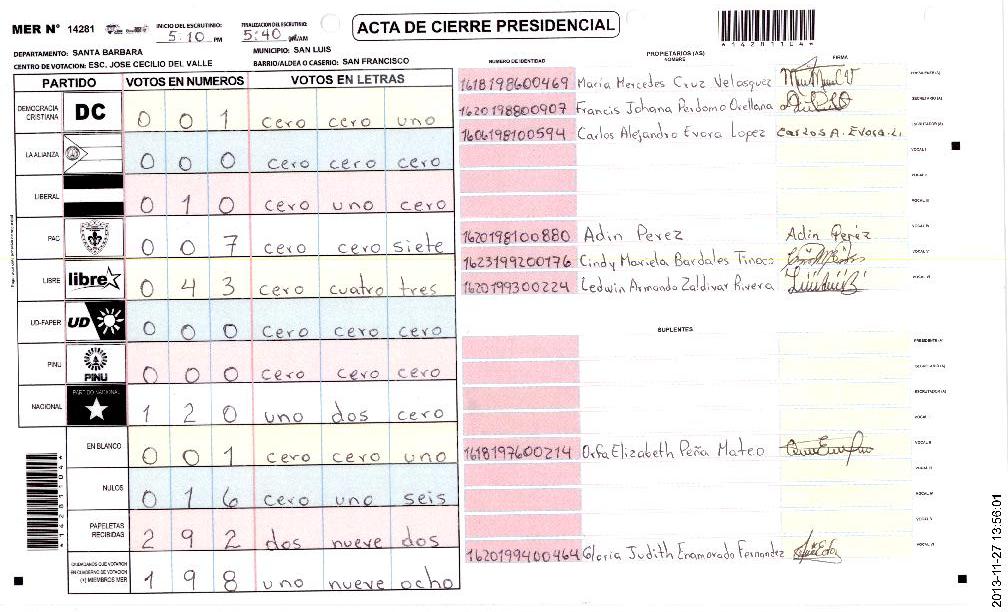 MER Nº 14281 INICIO DEL ESCRUTINIO: 5:10 PM FINALIZACION DEL ESCRUTINIO: 5:40 PM/AM ACTA DE CIERRE PRESIDENCIAL
*14281104*
DEPARTAMENTO: SANTA BARBARA MUNICIPIO: SAN LUIS
CENTRO DE VOTACION: ESC. JOSE CECILIO DEL VALLE BARRIO/ALDEA O CASERIO: SAN FRANCISCO
PARTIDO VOTOS EN NUMEROS VOTOS EN LETRAS
DEMOCRACIA CRISTIANA DC 0 0 1 cero cero uno
LA ALIANZA 0 0 0 cero cero cero
LIBERAL 0 1 0 cero uno cero
PAC 0 0 7 cero cero siete
LIBRE libre 0 4 3 cero cuatro tres
UD-FAPER UD 0 0 0 cero cero cero
PINU PINU 0 0 0 cero cero cero
NACIONAL PARTIDO NACIONAL 1 2 0 uno dos cero
EN BLANCO 0 0 1 cero cero uno
NULOS 0 1 6 cero uno seis
PAPELETAS RECIBIDAS 2 9 2 dos nueve dos
CIUDADANOS QUE VOTARON EN CUADERNO DE VOTACION (+) MIEMBROS MER 1 9 8 uno nueve ocho
NUMERO DE IDENTIDAD PROPIETARIOS (AS) NOMBRE FIRMA
1618198600469 Maria Mercedes Cruz Velasquez PRESIDENTE (A)
1620198800907 Francis Johana Perdomo Orellana SECRETARIO (A)
1606198100594 Carlos Alejandro Evora Lopez Carlos A. Evora. L. ESCRUTADOR (A)
VOCAL I
VOCAL II
VOCAL III
1620198100880 Adin Perez Adin Perez VOCAL IV
1623199200176 Cindy Mariela Bardales Tinoco VOCAL V
1620199300224 Ledwin Armando Zaldivar Rivera VOCAL VI
SUPLENTES
PRESIDENTE (A)
SECRETARIO (A)
ESCRUTADOR (A)
VOCAL I
1618197600214 Orfa Elizabeth Peña Mateo VOCAL II
VOCAL III
VOCAL IV
VOCAL V
1620199400464 Gloria Judith Enamorado Fernandez VOCAL VI
2013-11-27 13:56:01